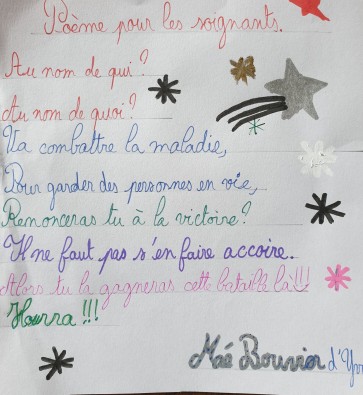 Poème pour les soignants.
Au nom de qui?
Au nom de quoi?
Va combattre la maladie,
Pour garder des personnes en vie,
Renonceras tu à la victoire?
Il ne faut pas s'en faire accoire.
Alors tu la gagneras cette bataille là!!!
Hourra!!!
Maé Bouvier